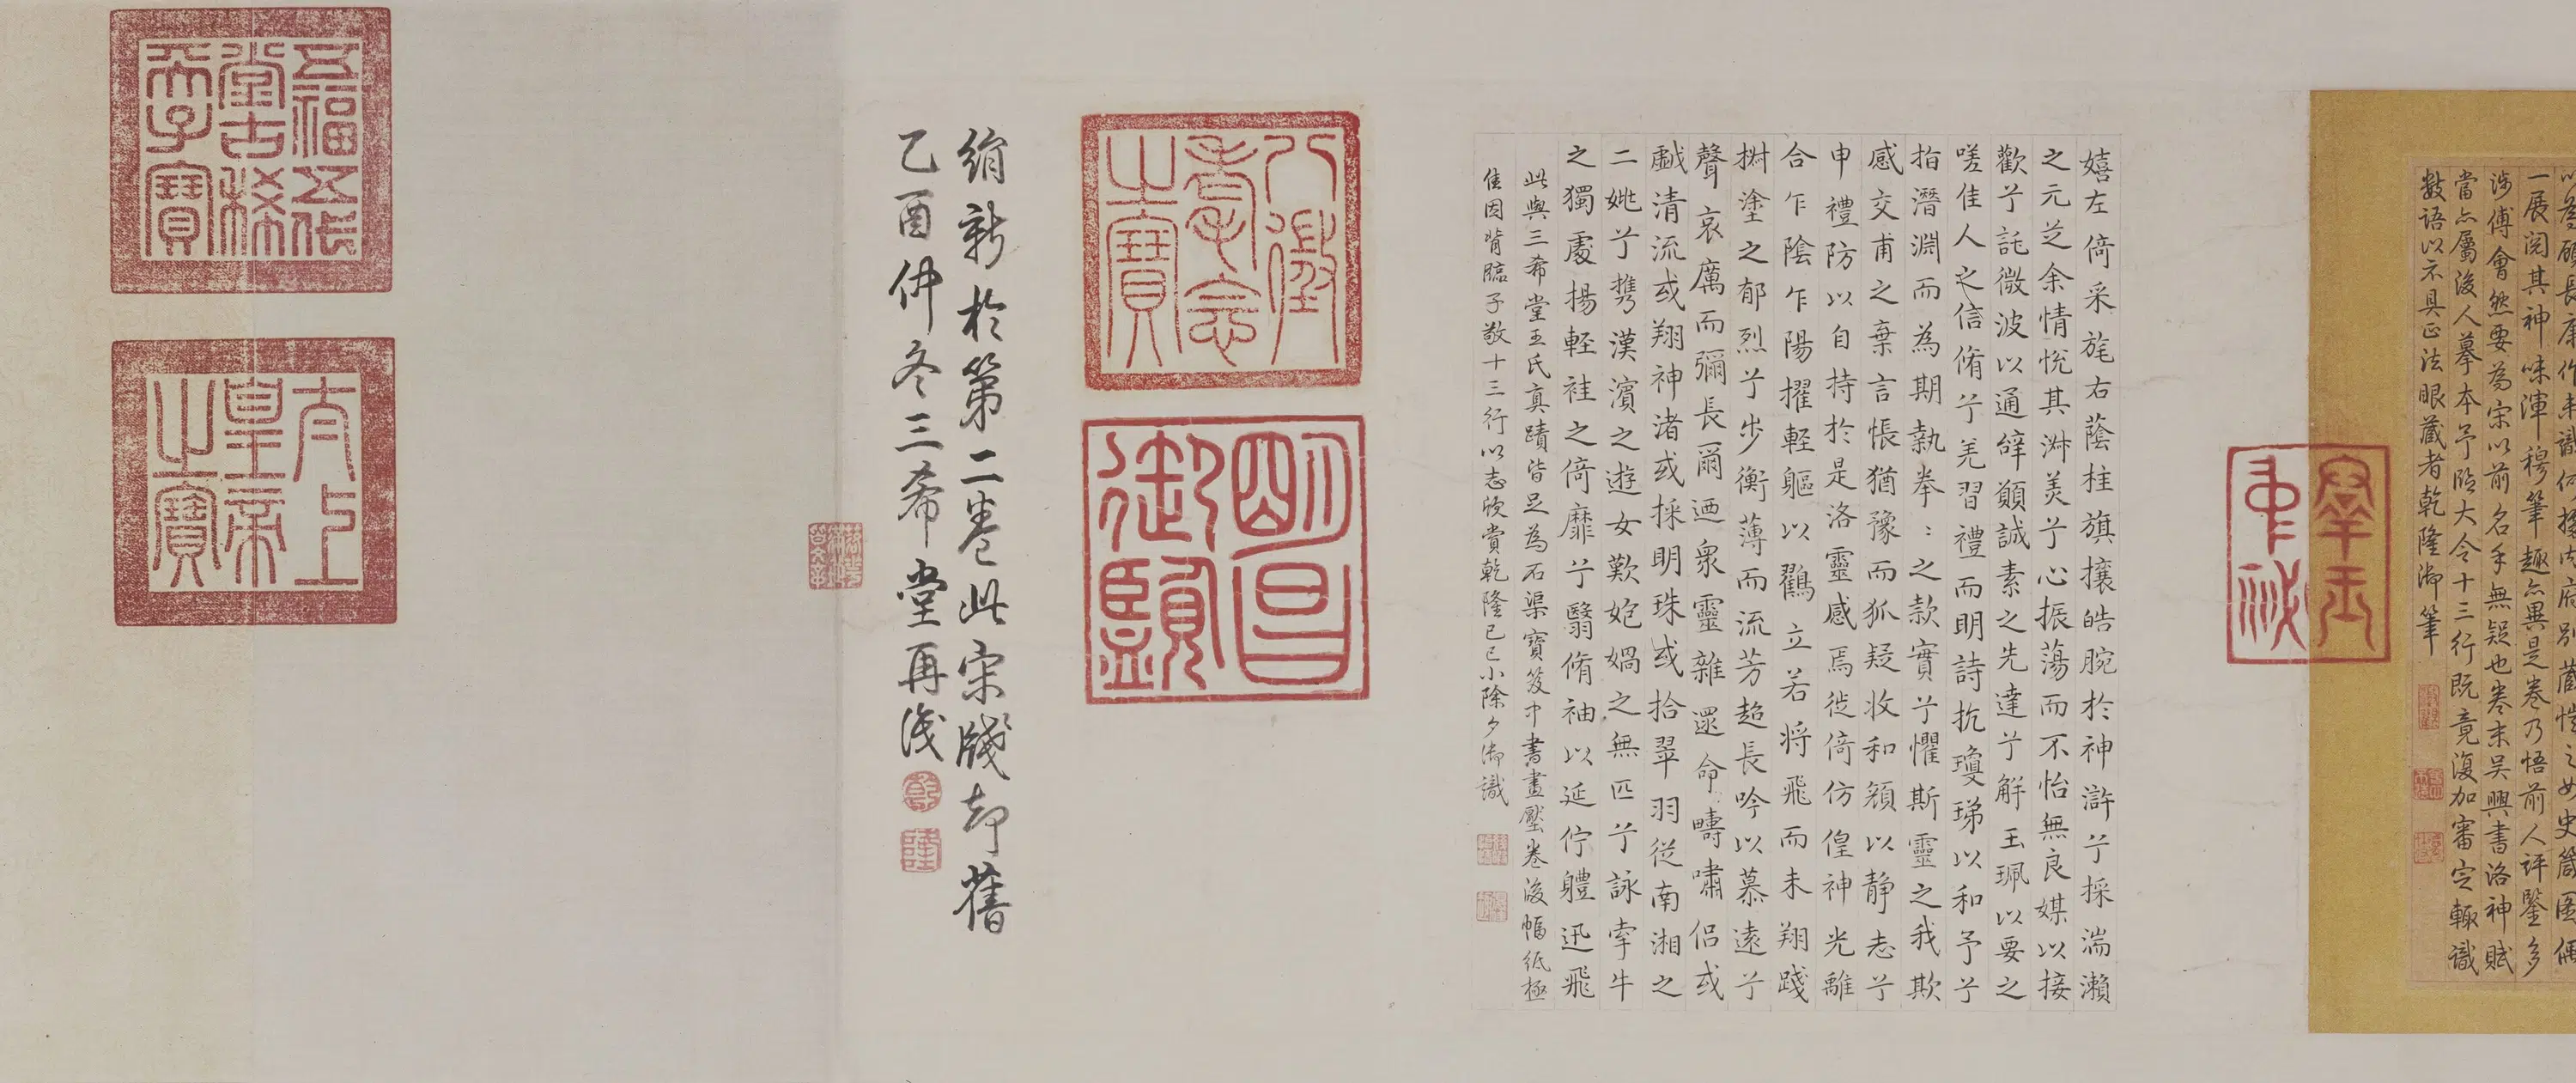 一展閱其神味渾穆筆趣亦異是卷乃悟前人評鑒多
涉傅會然要為宋以前名手無疑也卷末吳興書洛神賦
當亦屬後人摹本予臨大令十三行既竟復加審定輒識
數語以示具正法眼藏者乾隆御筆
嬉左倚采旄右蔭桂旗攘皓腕於神滸兮採湍瀨
之元芝余情悅其淋美兮心振蕩而不怡無良媒以接
歡兮託微波以通辭願誠素之先達兮解玉珮以要之
嗟佳人之信脩兮羌習禮而明詩抗瓊珶以和予兮
指潛淵而為期執拳:之款實兮懼斯靈之我欺
感交甫之棄言悵猶豫而狐疑收和顏以靜志兮
申禮防以自持於是洛靈感焉徙倚仿偟神光離
合乍陰乍陽擢輕軀以鸛立若將飛而未翔踐
椒塗之郁烈兮步衡薄而流芳超長吟以慕遠兮
聲哀厲而彌長爾迺眾靈雜遝命疇嘯侶或
戲清流或翔神渚或採明珠或拾翠羽從南湘之
二姚兮攜漢濱之遊女歎匏媧之無匹兮詠牽牛
之獨處揚輕袿之倚靡兮翳脩袖以延佇軆迅飛
此與三希堂王氏真蹟皆足為石渠寶笈中書畫壓卷後幅紙極
佳因背臨子敬十三行以志欣賞乾隆己巳小除夕御識
八徵耄念之寶
明昌御覽
絹新於第二卷此宋牋却舊
乙酉仲冬三希堂再識
乾
隆
五福五代堂古稀天子寶
太上皇帝之寶